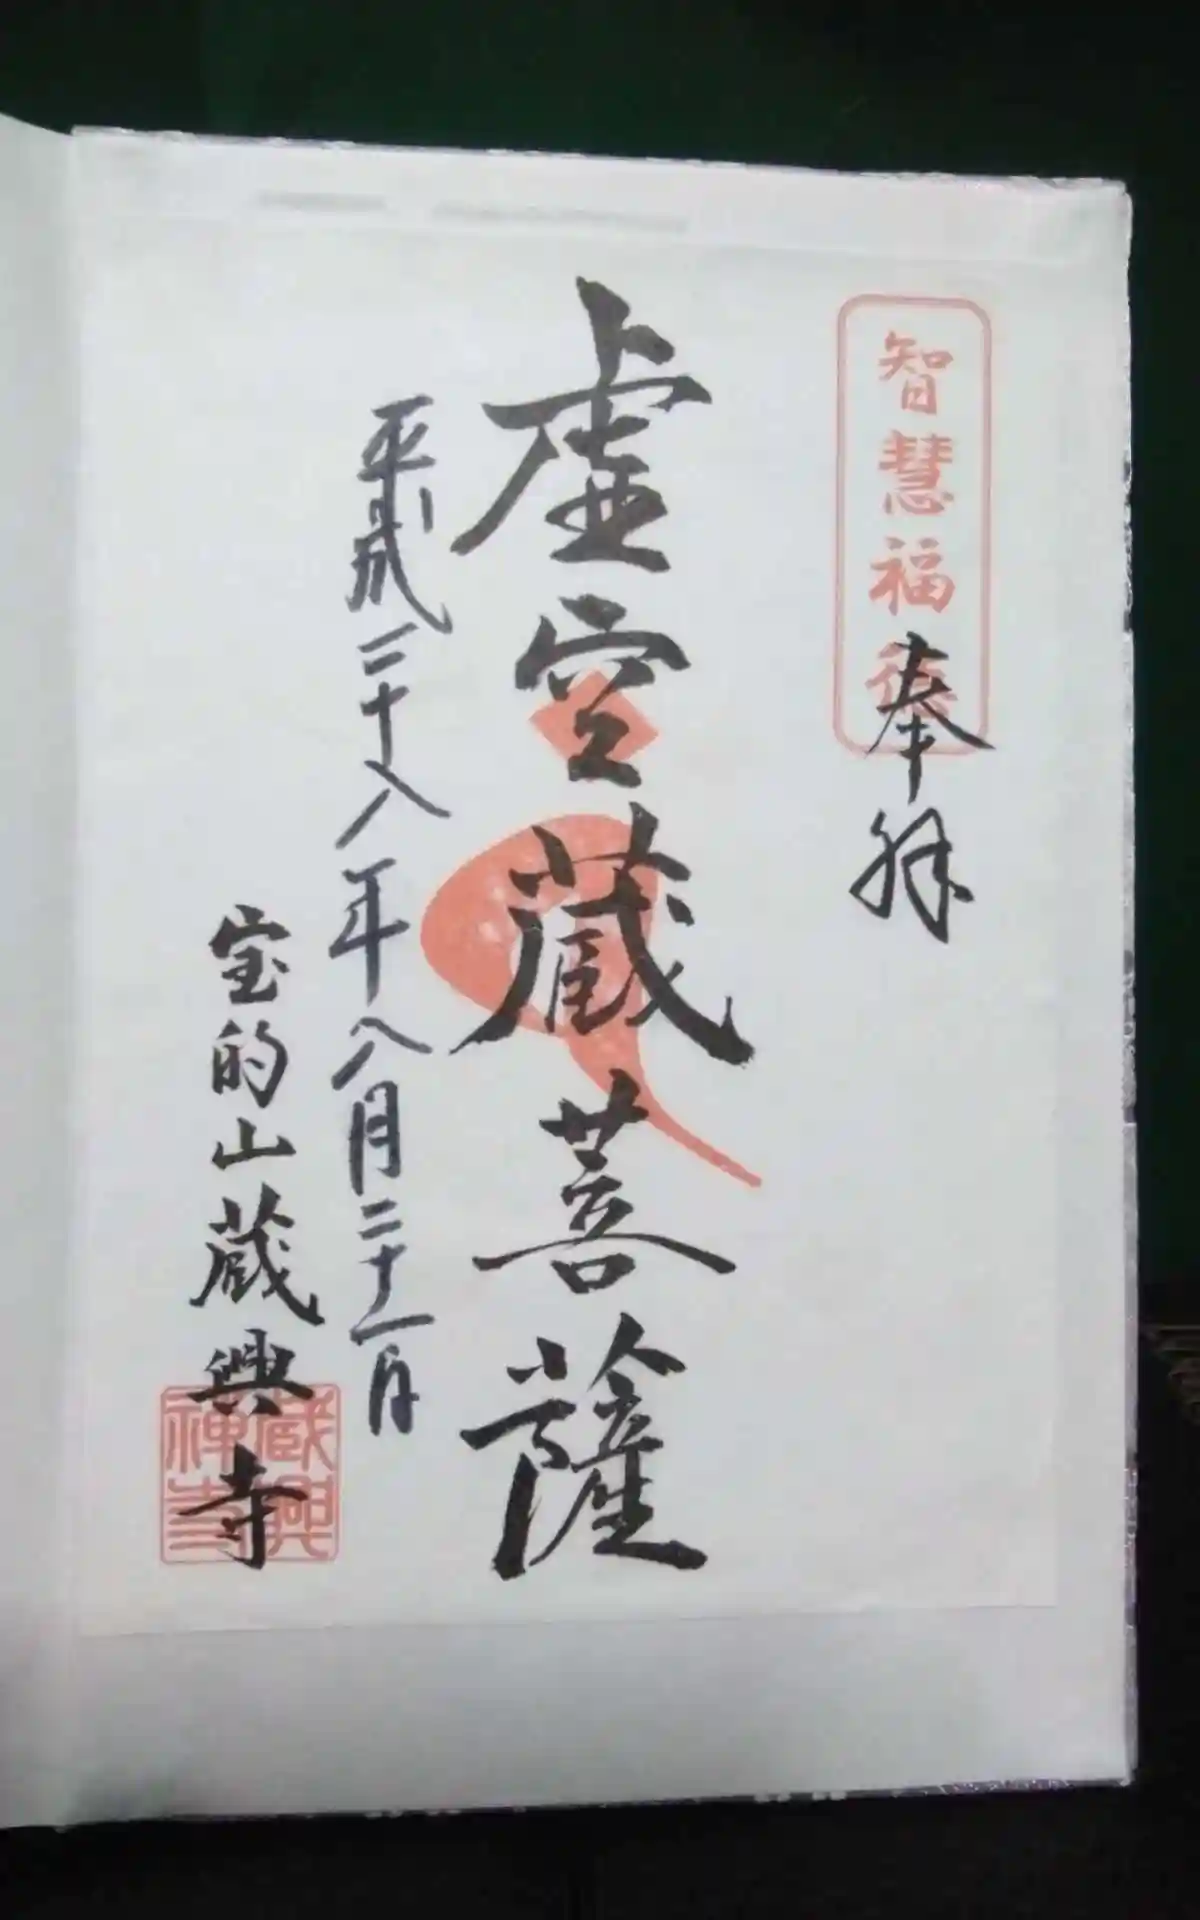 智慧福徳
奉拝
虚空蔵菩薩
平成二十八年八月二十一日
宝的山蔵興寺
蔵興
禅寺